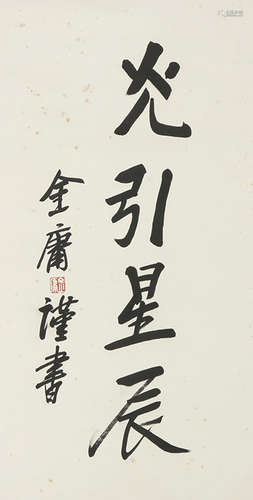 光引星辰
金庸謹書